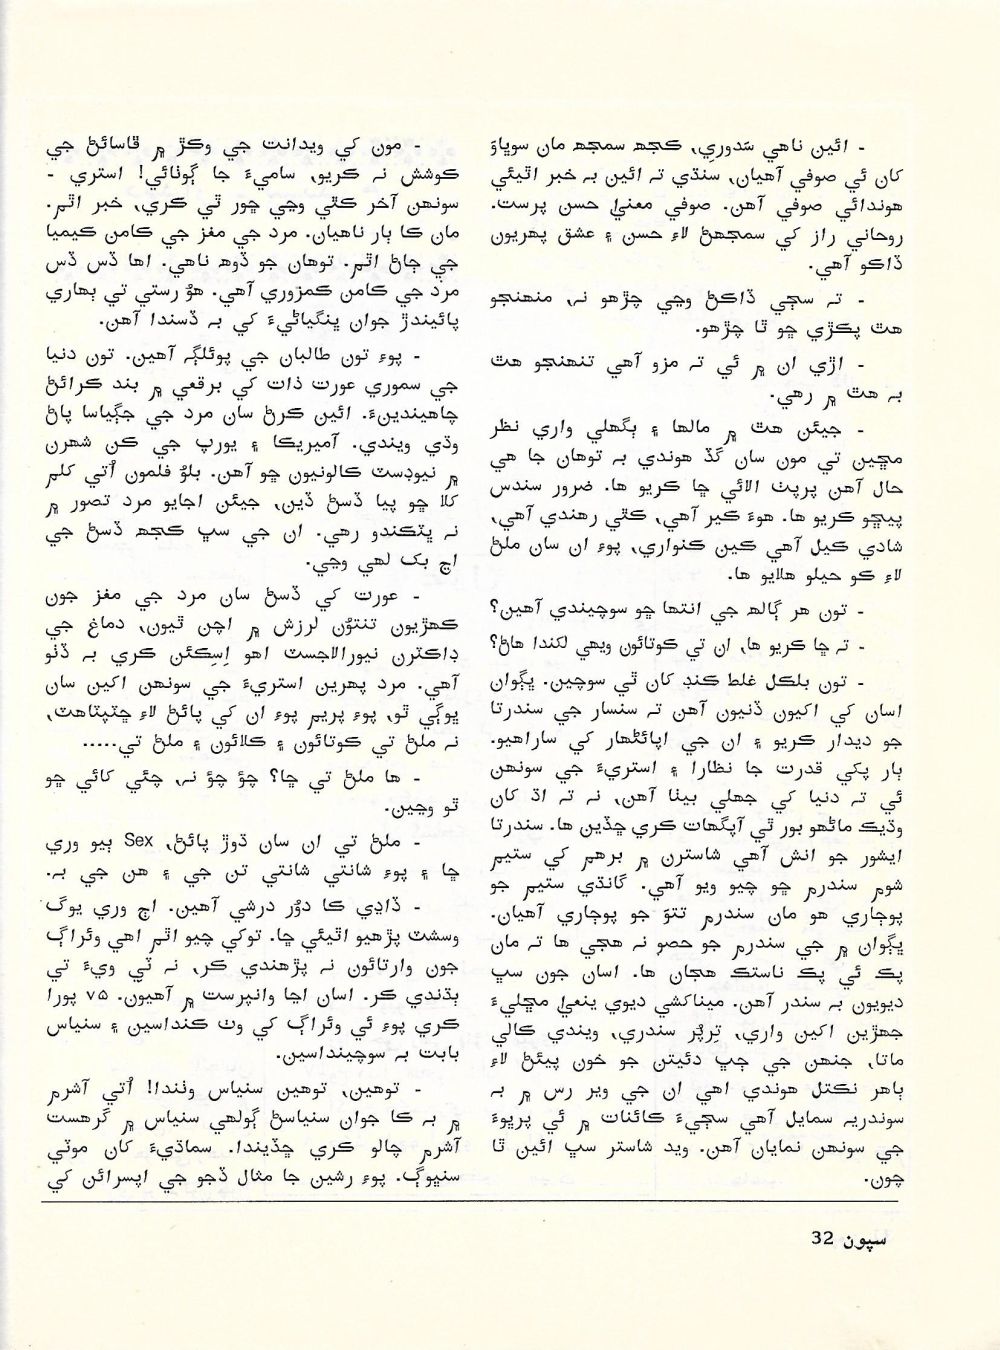 - ائين ناهي سَدوري، ڪجهہ سمجهہ مان سوياؤ
کان ئي صوفي آهيان، سنڌي تہ ائين بہ خبر اٿيئي
هوندائي صوفي آهن. صوفي معنيٰ حسن پرست.
روحاني راز کي سمجهڻ لاءِ حسن ۽ عشق پهريون
ڏاڪو آهي.
- تہ سڄي ڏاڪڻ وڃي چڙهو نہ، منهنجو
هٿ پڪڙي ڇو ٿا چڙهو.
- اڙي ان ۾ ئي تہ مزو آهي تنهنجو هٿ
بہ هٿ ۾ رهي.
- جيئن هٿ ۾ مالها ۽ ٻگهلي واري نظر
مڇين تي مون سان گڏ هوندي بہ توهان جا هي
حال آهن پرپٺ الائي ڇا ڪريو ها. ضرور سندس
پيڇو ڪريو ها. هوءَ ڪير آهي، ڪٿي رهندي آهي،
شادي ڪيل آهي ڪين ڪنواري، پوءِ ان سان ملڻ
لاءِ ڪو حيلو هلايو ها.
- تون هر ڳالهہ جي انتها ڇو سوچيندي آهين؟
- تہ ڇا ڪريو ها، ان تي ڪوتائون ويهي لکندا هاڻ؟
- تون بلڪل غلط ڪنڊ کان ٿي سوچين. ڀڳوان
اسان کي اکيون ڏنيون آهن تہ سنسار جي سندرتا
جو ديدار ڪريو ۽ ان جي اپائڻهار کي ساراهيو.
ٻار پکي قدرت جا نظارا ۽ استريءَ جي سونهن
ئي تہ دنيا کي جهلي بيٺا آهن، نہ تہ اڌ کان
وڌيڪ ماڻهو بور ٿي آپگهات ڪري ڇڏين ها. سندرتا
ايشور جو انش آهي شاسترن ۾ برهم کي ستيم
شوم سندرم چو چيو ويو آهي. گانڌي ستيم جو
پوڄاري هو مان سندرم تتوَ جو پوڄاري آهيان.
ڀڳوان ۾ جي سندرم جو حصو نہ هجي ها تہ مان
پڪ ئي پڪ ناستڪ هجان ها. اسان جون سڀ
ديويون بہ سندر آهن. ميناکشي ديوي يعنيٰ مڇليءَ
جهڙين اکين واري، تِرپُر سندري، ويندي ڪالي
ماتا، جنهن جي ڄڀ دئيتن جو خون پيئڻ لاءِ
ٻاهر نڪتل هوندي آهي ان جي وير رس ۾ بہ
سوندريہ سمايل آهي سڄيءَ ڪائنات ۾ ئي پريوءَ
جي سونهن نمايان آهن. ويد شاستر سڀ ائين ٿا
چون.
- مون کي ويدانت جي وڪڙ ۾ ڦاسائڻ جي
ڪوشش نہ ڪريو، ساميءَ جا ڳوٺائي! استري -
سونهن آخر ڪٿي وڃي چور ٿي ڪري، خبر اٿم.
مان ڪا ٻار ناهيان. مرد جي مغز جي ڪامن ڪيميا
جي ڄاڻ اٿم. توهان جو ڏوهہ ناهي. اها ڏس ڏس
مرد جي ڪامن ڪمزوري آهي. هوُ رستي تي ٻهاري
پائيندڙ جوان ڀنگياڻيءَ کي بہ ڏسندا آهن.
- پوءِ تون طالبان جي پوئلڳہ آهين. تون دنيا
جي سموري عورت ذات کي برقعي ۾ بند ڪرائڻ
چاهيندينءَ. ائين ڪرڻ سان مرد جي جڳياسا پاڻ
وڌي ويندي. آميريڪا ۽ يورپ جي ڪن شهرن
۾ نيوڊسٽ ڪالونيون ڇو آهن. بلوُ فلمون اُتي کلم
کلا ڇو پيا ڏسڻ ڏين، جيئن اجايو مرد تصور ۾
نہ ڀٽڪندو رهي. ان جي سڀ ڪجهہ ڏسڻ جي
اڃ بک لهي وڃي.
- عورت کي ڏسڻ سان مرد جي مغز جون
ڪهڙيون تنتوُن لرزش ۾ اچن ٿيون، دماغ جي
ڊاڪٽرن نيورالاجسٽ اهو اِسڪئن ڪري بہ ڏٺو
آهي. مرد پهرين استريءَ جي سونهن اکين سان
ڀوڳي ٿو، پوءِ پريم پوءِ ان کي پائڻ لاءِ ڇٽپٽاهٽ،
نہ ملڻ تي ڪوتائون ۽ ڪلائون ۽ ملڻ تي.....
- ها ملڻ تي ڇا؟ چؤ چؤ نہ، چٿي کائي ڇو
ٿو وڃين.
- ملڻ تي ان سان ڌوڙ پائڻ، Sex ٻيو وري
ڇا ۽ پوءِ شانتي شانتي تن جي ۽ هن جي بہ.
- ڏاڍي ڪا دوُر درشي آهين. اڄ وري يوگ
وسشٽ پڙهيو اٿيئي ڇا. توکي چيو اٿم اهي وئراڳ
جون وارتائون نہ پڙهندي ڪر، نہ ٽي ويءَ تي
ٻڌندي ڪر. اسان اڃا وانپرست ۾ آهيون. ٧٥ پورا
ڪري پوءِ ئي وئراڳ کي وٺ ڪنداسين ۽ سنياس
بابت بہ سوچينداسين.
- توهين، توهين سنياس وٺندا! اُتي آشرم
۾ بہ ڪا جوان سنياسڻ ڳولهي سنياس ۾ گرهست
آشرم چالو ڪري ڇڏيندا. سماڌيءَ کان موٽي
سنڀوڳ. پوءِ رشين جا مثال ڏجو جي اپسرائن کي
سپون 32